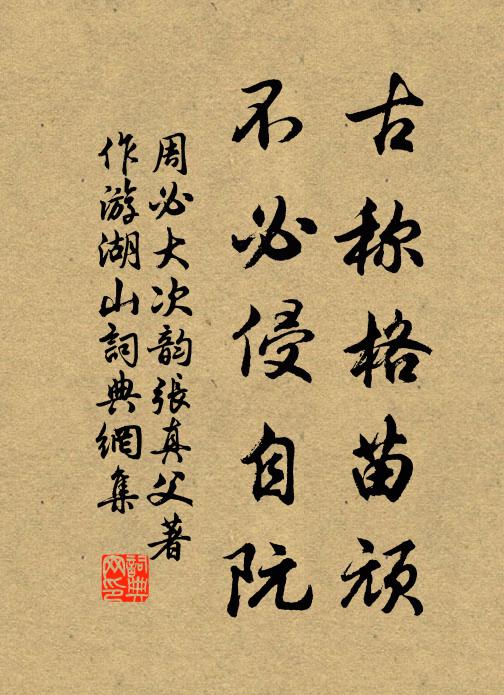 古称格苗顽
不必侵自阮
周必大次韵張真父著
作游湖山詞典網集
詞典网印